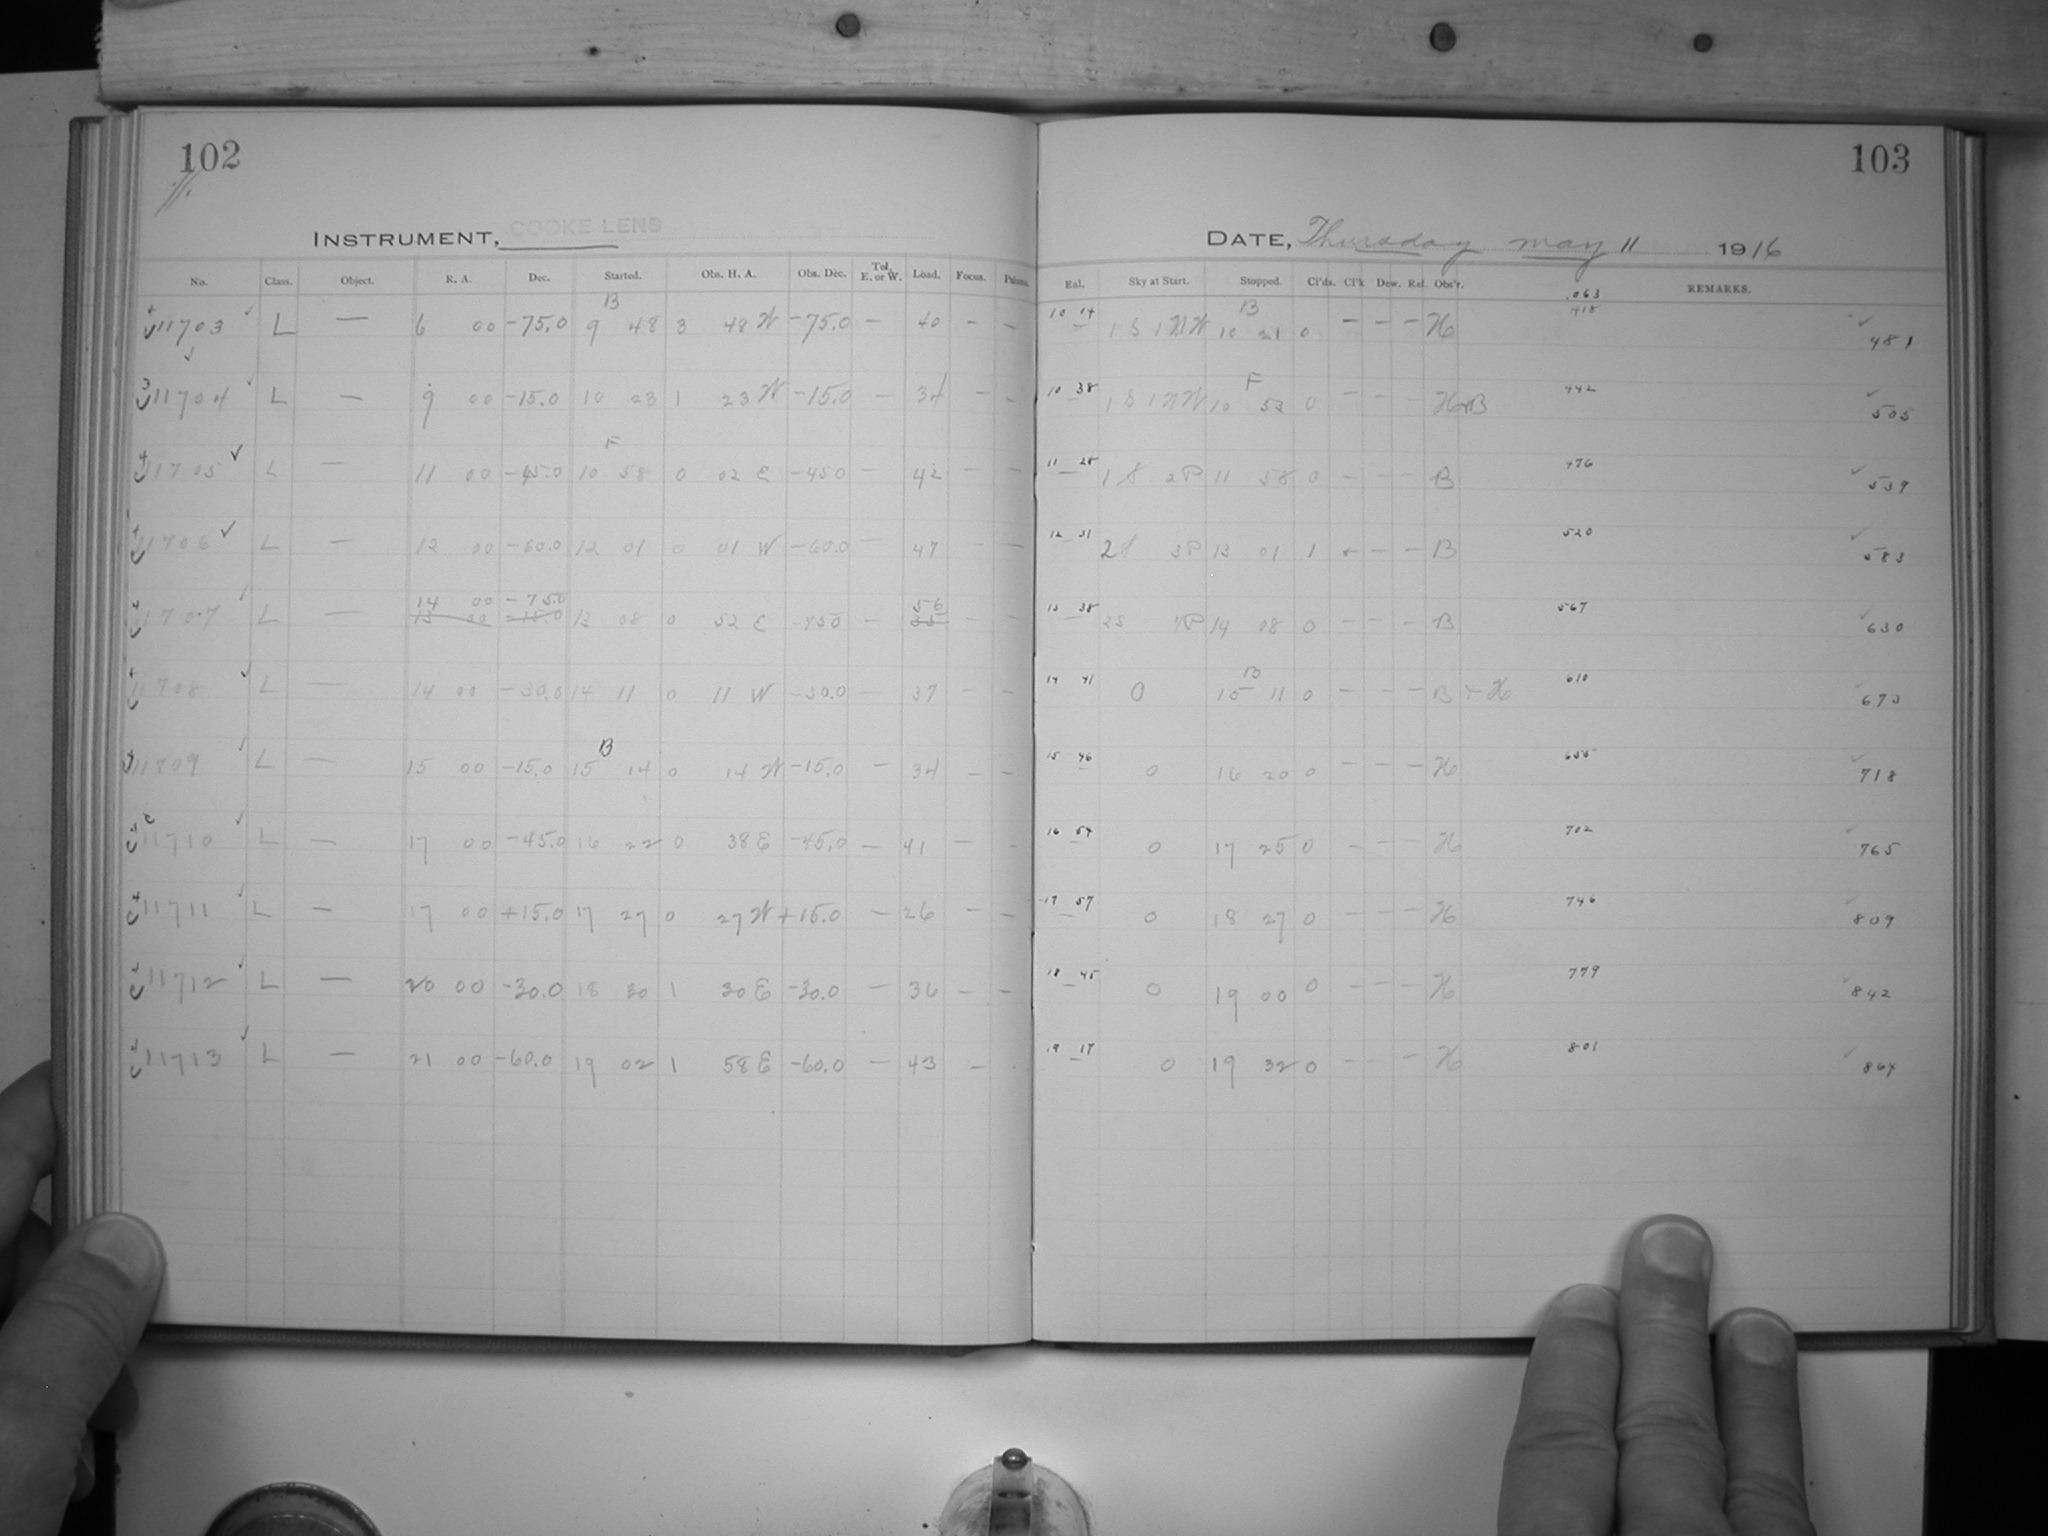 102
INSTRUMENT, COOKE LENS
No. Class. Object. R. A. Dec. Started. Obs. H. A. Obs. Dec. Tel. E. or W. Load. Focus.
B
11703 L — 6 00 -75.0 9 48 3 48 W -75.0 — 40 - -
11704 L — 9 00 -15.0 10 23 1 23 W -15.0 — 34 - -
F
11705 L — 11 00 -45.0 10 58 0 02 E -45.0 — 42 - -
11706 L — 12 00 -60.0 12 01 0 01 W -60.0 — 47 - -
14 00 -75.0 56
11707 L — 13 08 0 52 E -75.0 — - -
11708 L — 14 00 -30.0 14 11 0 11 W -30.0 — 37 - -
B
11709 L — 15 00 -15.0 15 14 0 14 W -15.0 — 34 - -
11710 L — 17 00 -45.0 16 22 0 38 E -45.0 — 41 - -
11711 L — 17 00 +15.0 17 27 0 27 W +15.0 — 26 - -
11712 L — 20 00 -30.0 18 30 1 30 E -30.0 — 36 - -
11713 L — 21 00 -60.0 19 02 1 58 E -60.0 — 43 -
103
DATE, Thursday May 11 1916
Eal. Sky at Start. Stopped. Cl'ds. Cl'k Dew. Ref. Obs'r. REMARKS.
.063
B
10 14 1 S 1 NW 10 21 0 - - - H 418 481
F
10 38 1 S 1 NW 10 53 0 - - - H+B 442 505
11 28 1 S 2 P 11 58 0 - - - B 476 539
12 31 2 S 3 P 13 01 1 - - - B 520 583
13 38 2 S P 14 08 0 - - - B 567 630
B
14 41 0 15 11 0 - - - B + H 610 673
15 46 0 16 20 0 - - - H 655 718
16 54 0 17 25 0 - - - H 702 765
17 57 0 18 27 0 - - - H 746 809
18 45 0 19 00 0 - - - H 779 842
19 17 0 19 32 0 - - - H 801 864